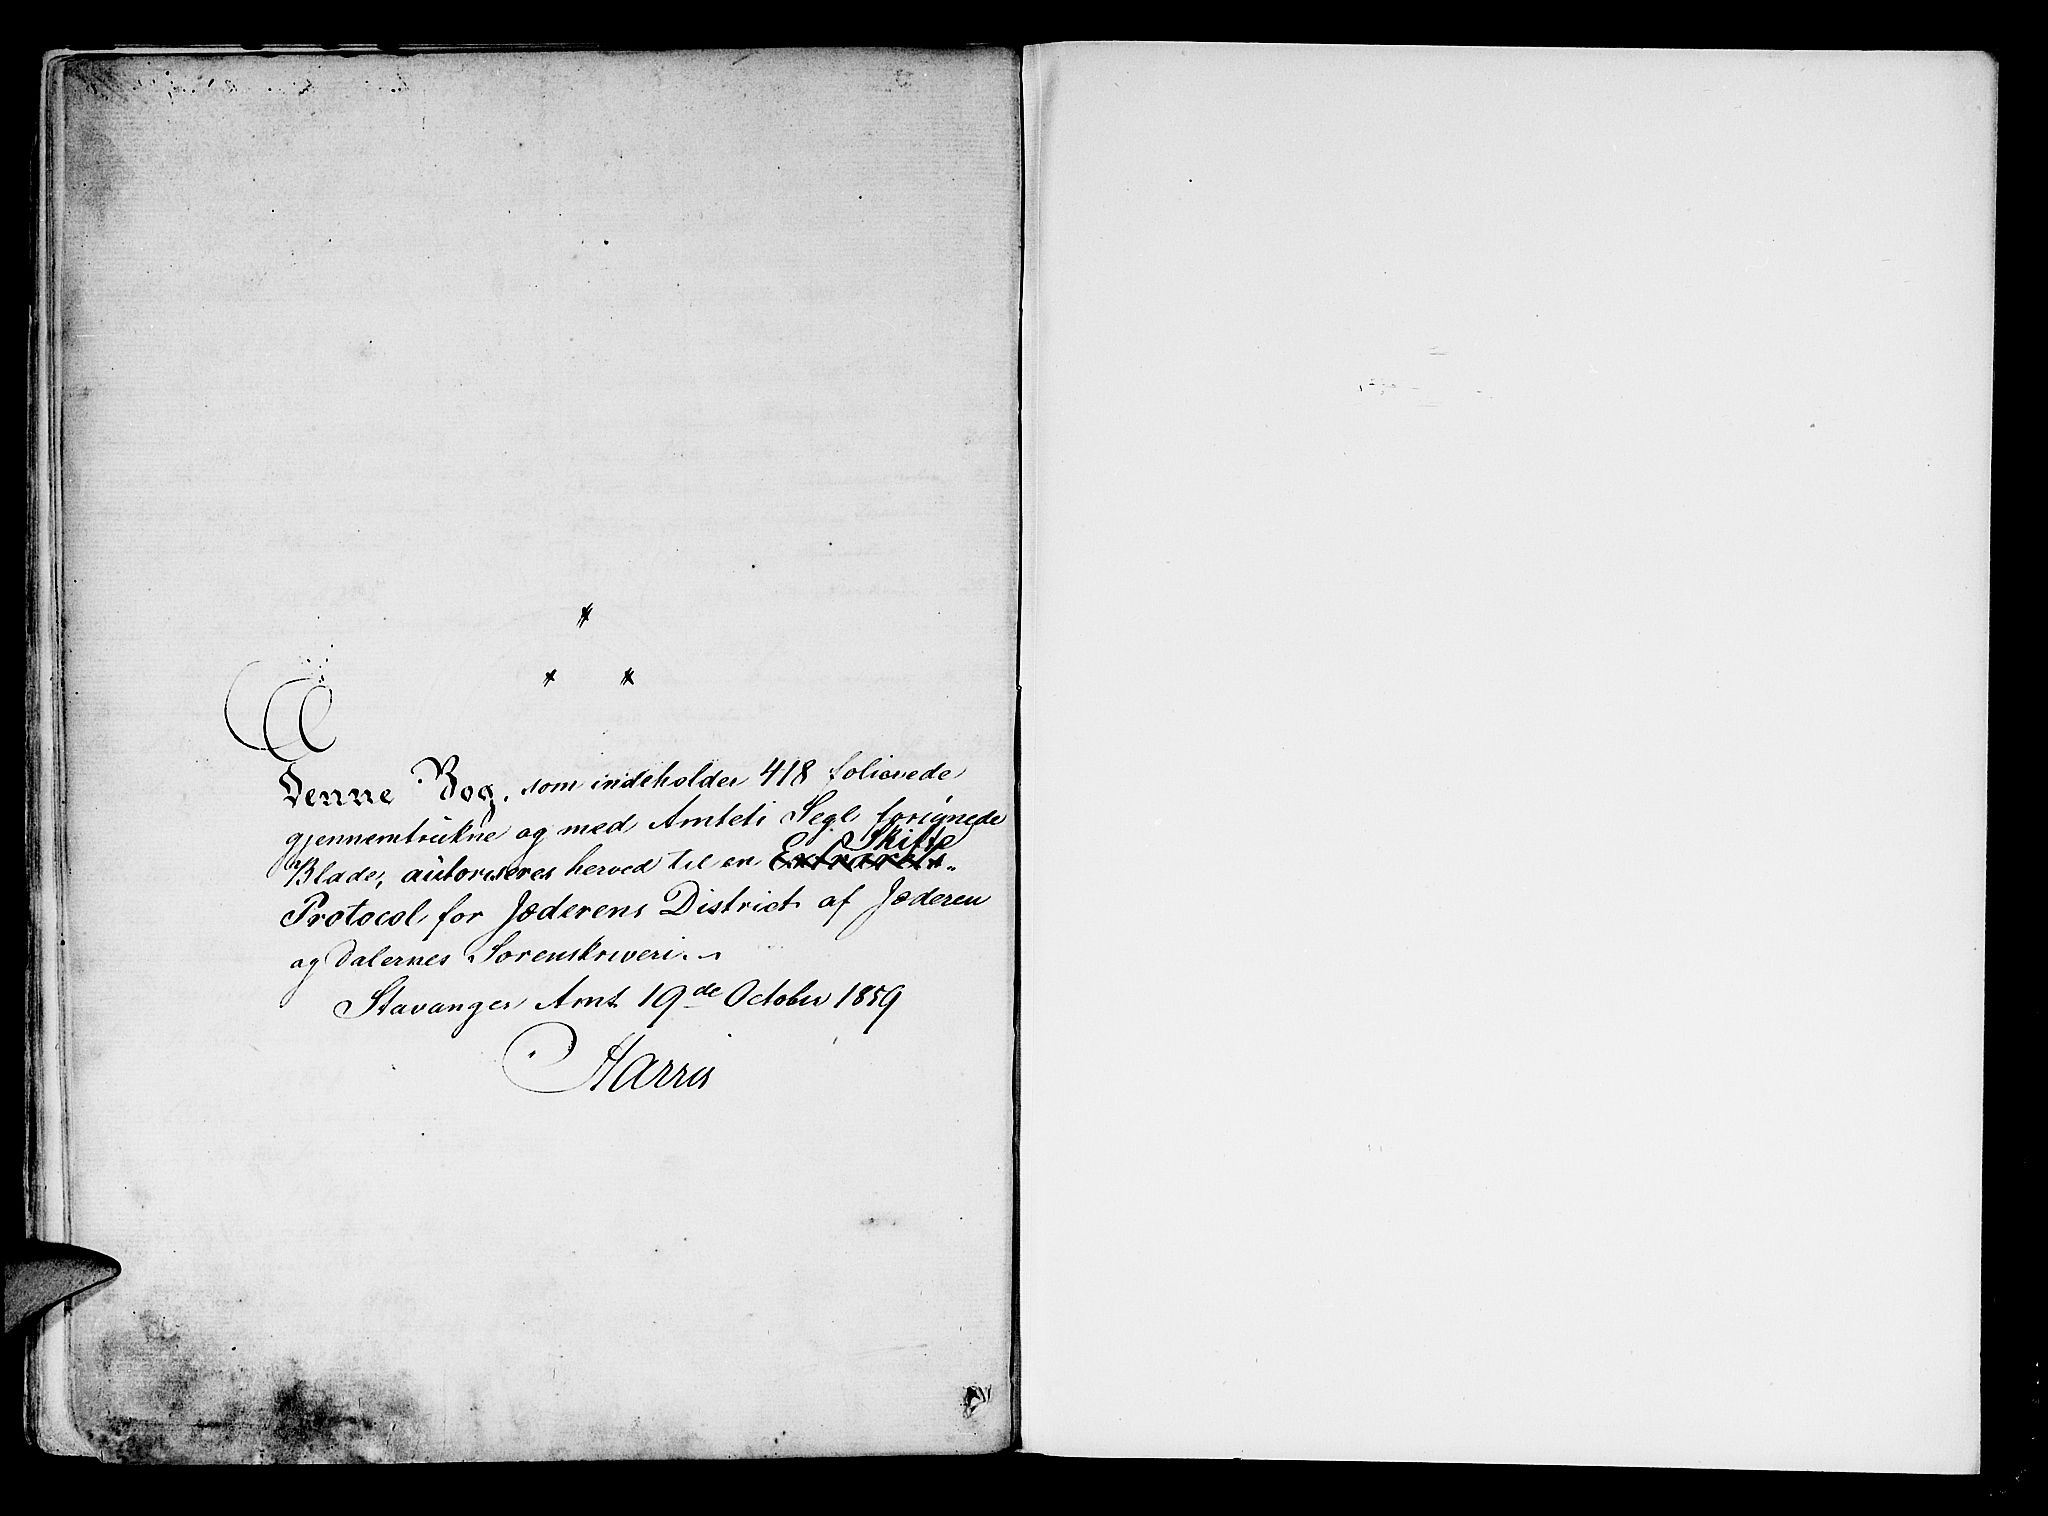 Denne Bog, som indeholder 418 folierede
gjennemtrukne og med Amtets Segl forsynede
Skifte
Blade, autoriseres herved til en Extraräts-
Protocol for Jæderens District af Jæderen
og Dalernes Sorenskriveri.
Stavanger Amt 19de October 1859
Harris